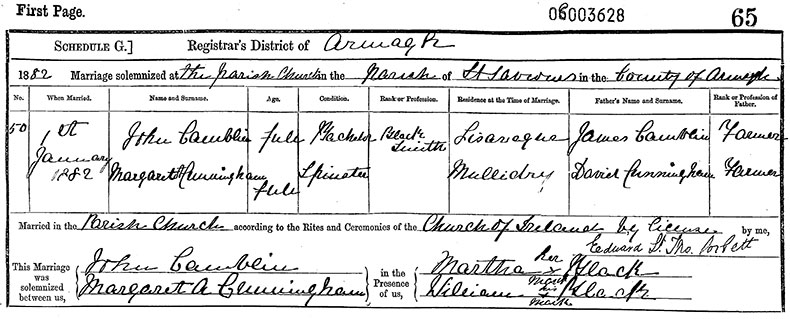 First Page. 06003628 65
SCHEDULE G.] Registrar's District of Armagh
1882 Marriage solemnized at the Parish Church in the Parish of St Saviours in the County of Armagh
No. When Married. Name and Surname. Age. Condition. Rank or Profession. Residence at the Time of Marriage. Father's Name and Surname. Rank or Profession of Father.
50 1st January 1882 John Camblin full Bachelor Black Smith Lisavague James Camblin Farmer
Margaret A Cunningham full Spinster Mullidry David Cunningham Farmer
Married in the Parish Church according to the Rites and Ceremonies of the Church of Ireland by License by me,
Edward St. Tho.
This Marriage was solemnized between us, John Camblin in the Presence of us, Martha her x mark Black
Margaret A Cunningham William his x mark Black